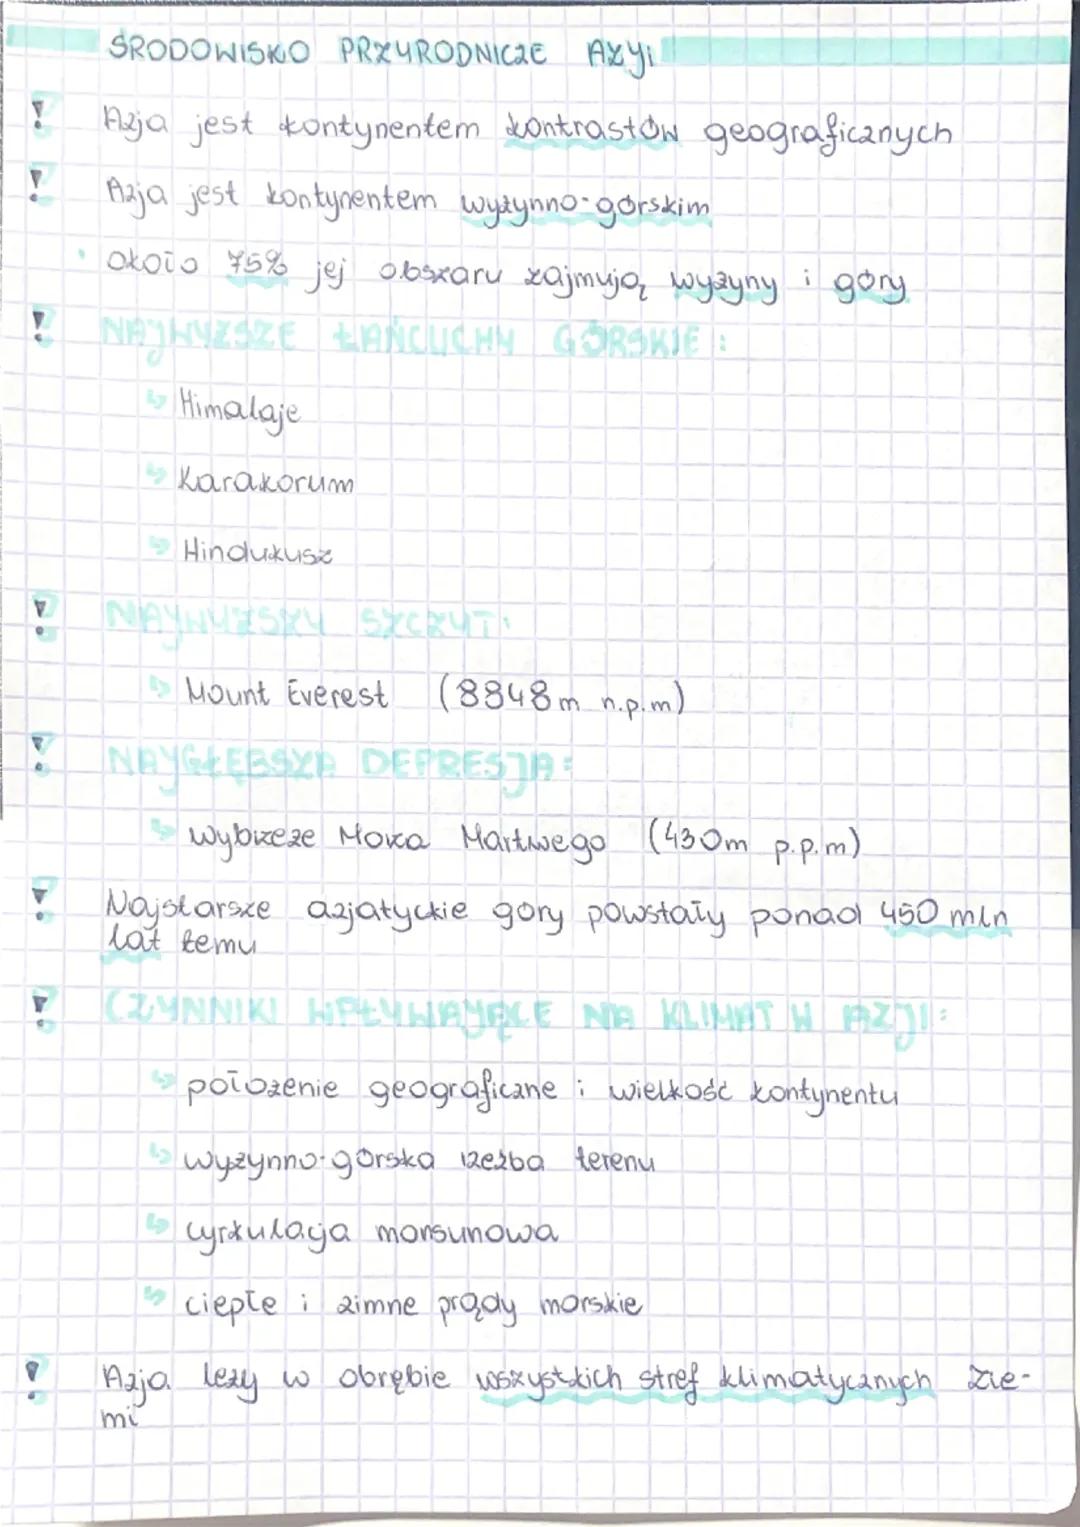 ŚRODOWISKO PRZYRODNICZE AZYI
! Azja jest kontynentem kontrastów geograficznych
! Azja jest kontynentem wyżynno-górskim
• około 75% jej obszaru zajmują wyżyny i góry
! NAJWYŻSZE ŁAŃCUCHY GÓRSKIE:
↳ Himalaje
↳ Karakorum
↳ Hindukusz
! NAYWYŻSZY SZCZYT:
↳ Mount Everest (8848m n.p.m)
! NAYGŁĘBSZA DEPRESJA:
↳ wybrzeże Morza Martwego (430m p.p.m)
! Najstarsze azjatyckie góry powstały ponad 450 mln
lat temu
! CZYNNIKI WPŁYWAYĄCE NA KLIMAT W AZJI:
↳ położenie geograficzne i wielkość kontynentu
↳ wyżynno-górska rzeźba terenu
↳ cyrkulacja monsunowa
↳ ciepłe i zimne prądy morskie
! Azja leży w obrębie wszystkich stref klimatycznych Zie-
mi